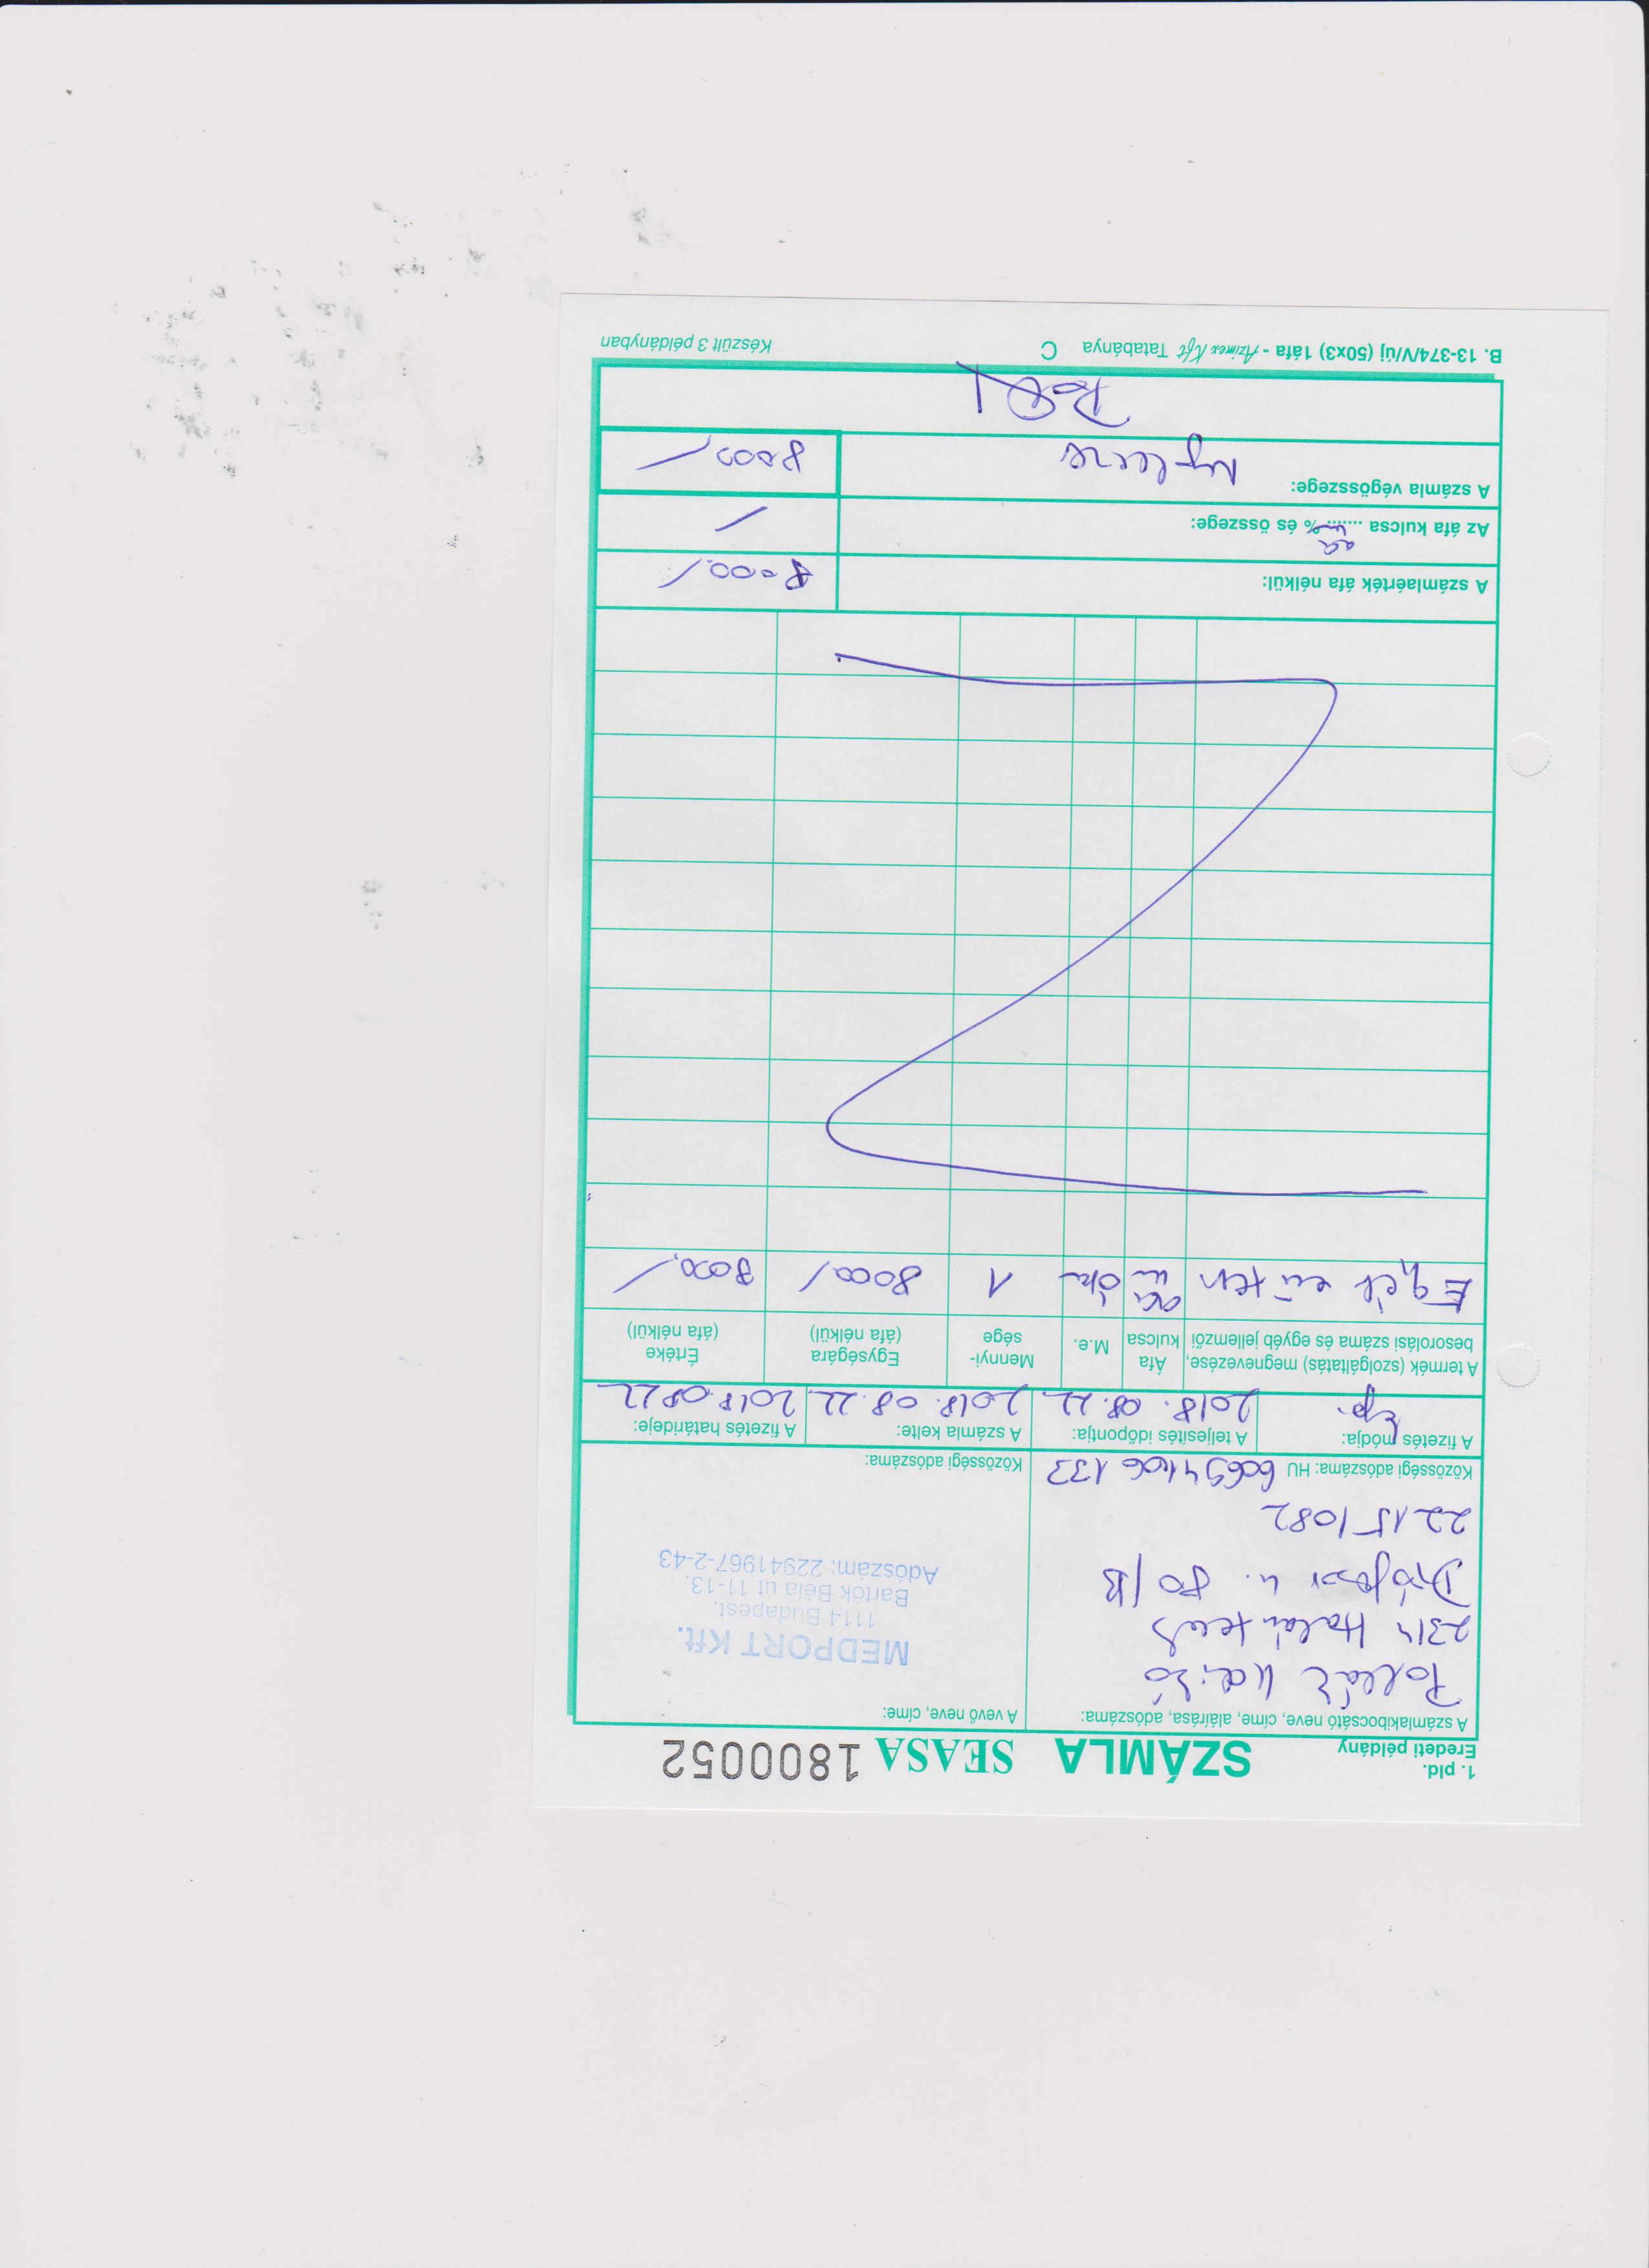 1. pld.
Eredeti példány
SZÁMLA SEASA 1800052
A számlakibocsátó neve, címe, aláírása, adószáma:
Pollák
2314 Halásztelek
Diófasor u. 80/B
2215 1082
Közösségi adószáma: HU
A vevő neve, címe:
MEDPORT Kft.
1114 Budapest,
Bartók Béla út 11-13.
Adószám: 22941967-2-43
Közösségi adószáma:
A fizetés módja: Kp.
A teljesítés időpontja: 2018. 08. 22.
A számla kelte: 2018. 08. 22.
A fizetés határideje: 2018. 08 22
A termék (szolgáltatás) megnevezése, besorolási száma és egyéb jellemzői
Áfa kulcsa
M.e.
Mennyi-
sége
Egységára
(áfa nélkül)
Értéke
(áfa nélkül)
1 8000/ 8000,/
A számlaérték áfa nélkül: 8000/
Az áfa kulcsa ........ % és összege: /
A számla végösszege: Nyolcezer 8000/
B. 13-374/V/új (50x3) 1áfa - Azimex Kft Tatabánya C Készült 3 példányban